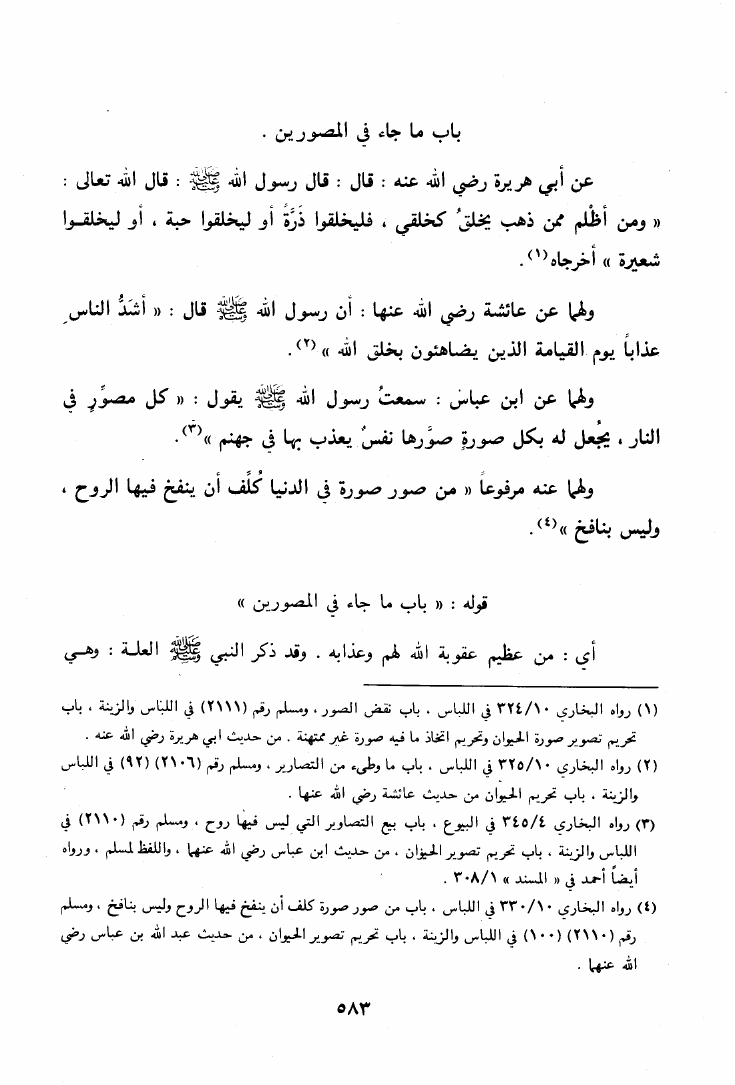 باب ما جاء في المصورين .
عن أبي هريرة رضي الله عنه : قال : قال رسول الله ﷺ : قال الله تعالى :
« ومن أظْلم ممن ذهب يخلقُ كخلقي ، فليخلقوا ذَرَّةً أو ليخلقوا حبة ، أو ليخلقوا
شعيرة » أخرجاه(١).
ولهما عن عائشة رضي الله عنها : أن رسول الله ﷺ قال : « أشدُّ الناس
عذاباً يوم القيامة الذين يضاهئون بخلق الله »(٢).
ولهما عن ابن عباس : سمعتُ رسول الله ﷺ يقول : « كل مصوِّرٍ في
النار ، يُجعل له بكل صورةٍ صوَّرها نفسٌ يعذب بها في جهنم »(٣).
ولهما عنه مرفوعاً « من صور صورة في الدنيا كُلِّف أن ينفخ فيها الروح ،
وليس بنافخ »(٤).
قوله : « باب ما جاء في المصورين »
أي : من عظيم عقوبة الله لهم وعذابه . وقد ذكر النبي ﷺ العلة : وهي
(١) رواه البخاري ٣٢٤/١٠ في اللباس ، باب نقض الصور ، ومسلم رقم (٢١١١) في اللباس والزينة ، باب
تحريم تصوير صورة الحيوان وتحريم اتخاذ ما فيه صورة غير ممتهنة . من حديث ابي هريرة رضي الله عنه .
(٢) رواه البخاري ٣٢٥/١٠ في اللباس ، باب ما وطىء من التصارير ، ومسلم رقم (٢١٠٦) (٩٢) في اللباس
والزينة ، باب تحريم الحيوان من حديث عائشة رضي الله عنها .
(٣) رواه البخاري ٣٤٥/٤ في البيوع ، باب بيع التصاوير التي ليس فيها روح ، ومسلم رقم (٢١١٠) في
اللباس والزينة ، باب تحريم تصوير الحيوان ، من حديث ابن عباس رضي الله عنهما ، واللفظ لمسلم ، ورواه
أيضاً أحمد في « المسند » ٣٠٨/١ .
(٤) رواه البخاري ٣٣٠/١٠ في اللباس ، باب من صور صورة كلف أن ينفخ فيها الروح وليس بنافخ ، ومسلم
رقم (٢١١٠) (١٠٠) في اللباس والزينة ، باب تحريم تصوير الحيوان ، من حديث عبد الله بن عباس رضي
الله عنهما .
٥٨٣